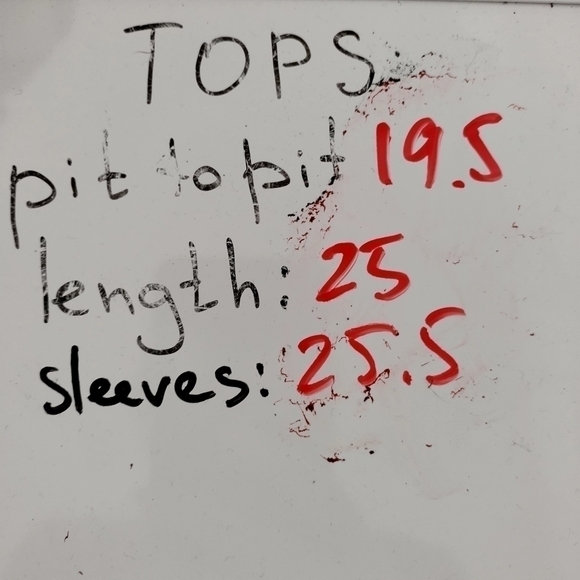 TOPS
pit to pit 19.5
length: 25
sleeves: 25.5